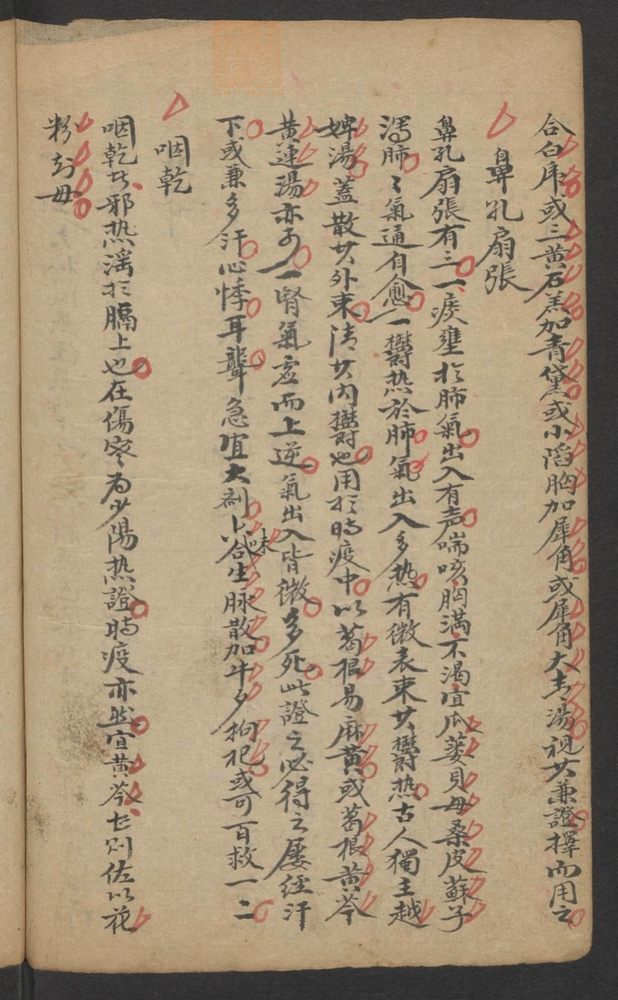 合白虎或三黄石羔加青黛或小陷胸加犀角或犀角大青湯視其兼證擇而用之
鼻孔扇張
鼻孔扇張有三一痰壅扵肺氣出入有声喘咳胸滿不渴宜瓜蔞貝母桑皮蘇子
瀉肺肺氣通自愈一鬱热於肺氣出入多热有微表束其鬱热古人獨主越
婢湯蓋散其外束清其内鬱也用扵時疫中以葛根易麻黄或葛根黄芩
黄連湯亦可一腎氣虚而上逆氣出入皆微多死此證之必得之屡經汗
下或兼多汗心悸耳聾急宜大剂六味合生脉散加牛夕拘杞或可百救一二
咽乾
咽乾皆邪热滛扵膈上也在傷寒为少陽热證時疫亦然宜黄芩七则佐以花
粉知母